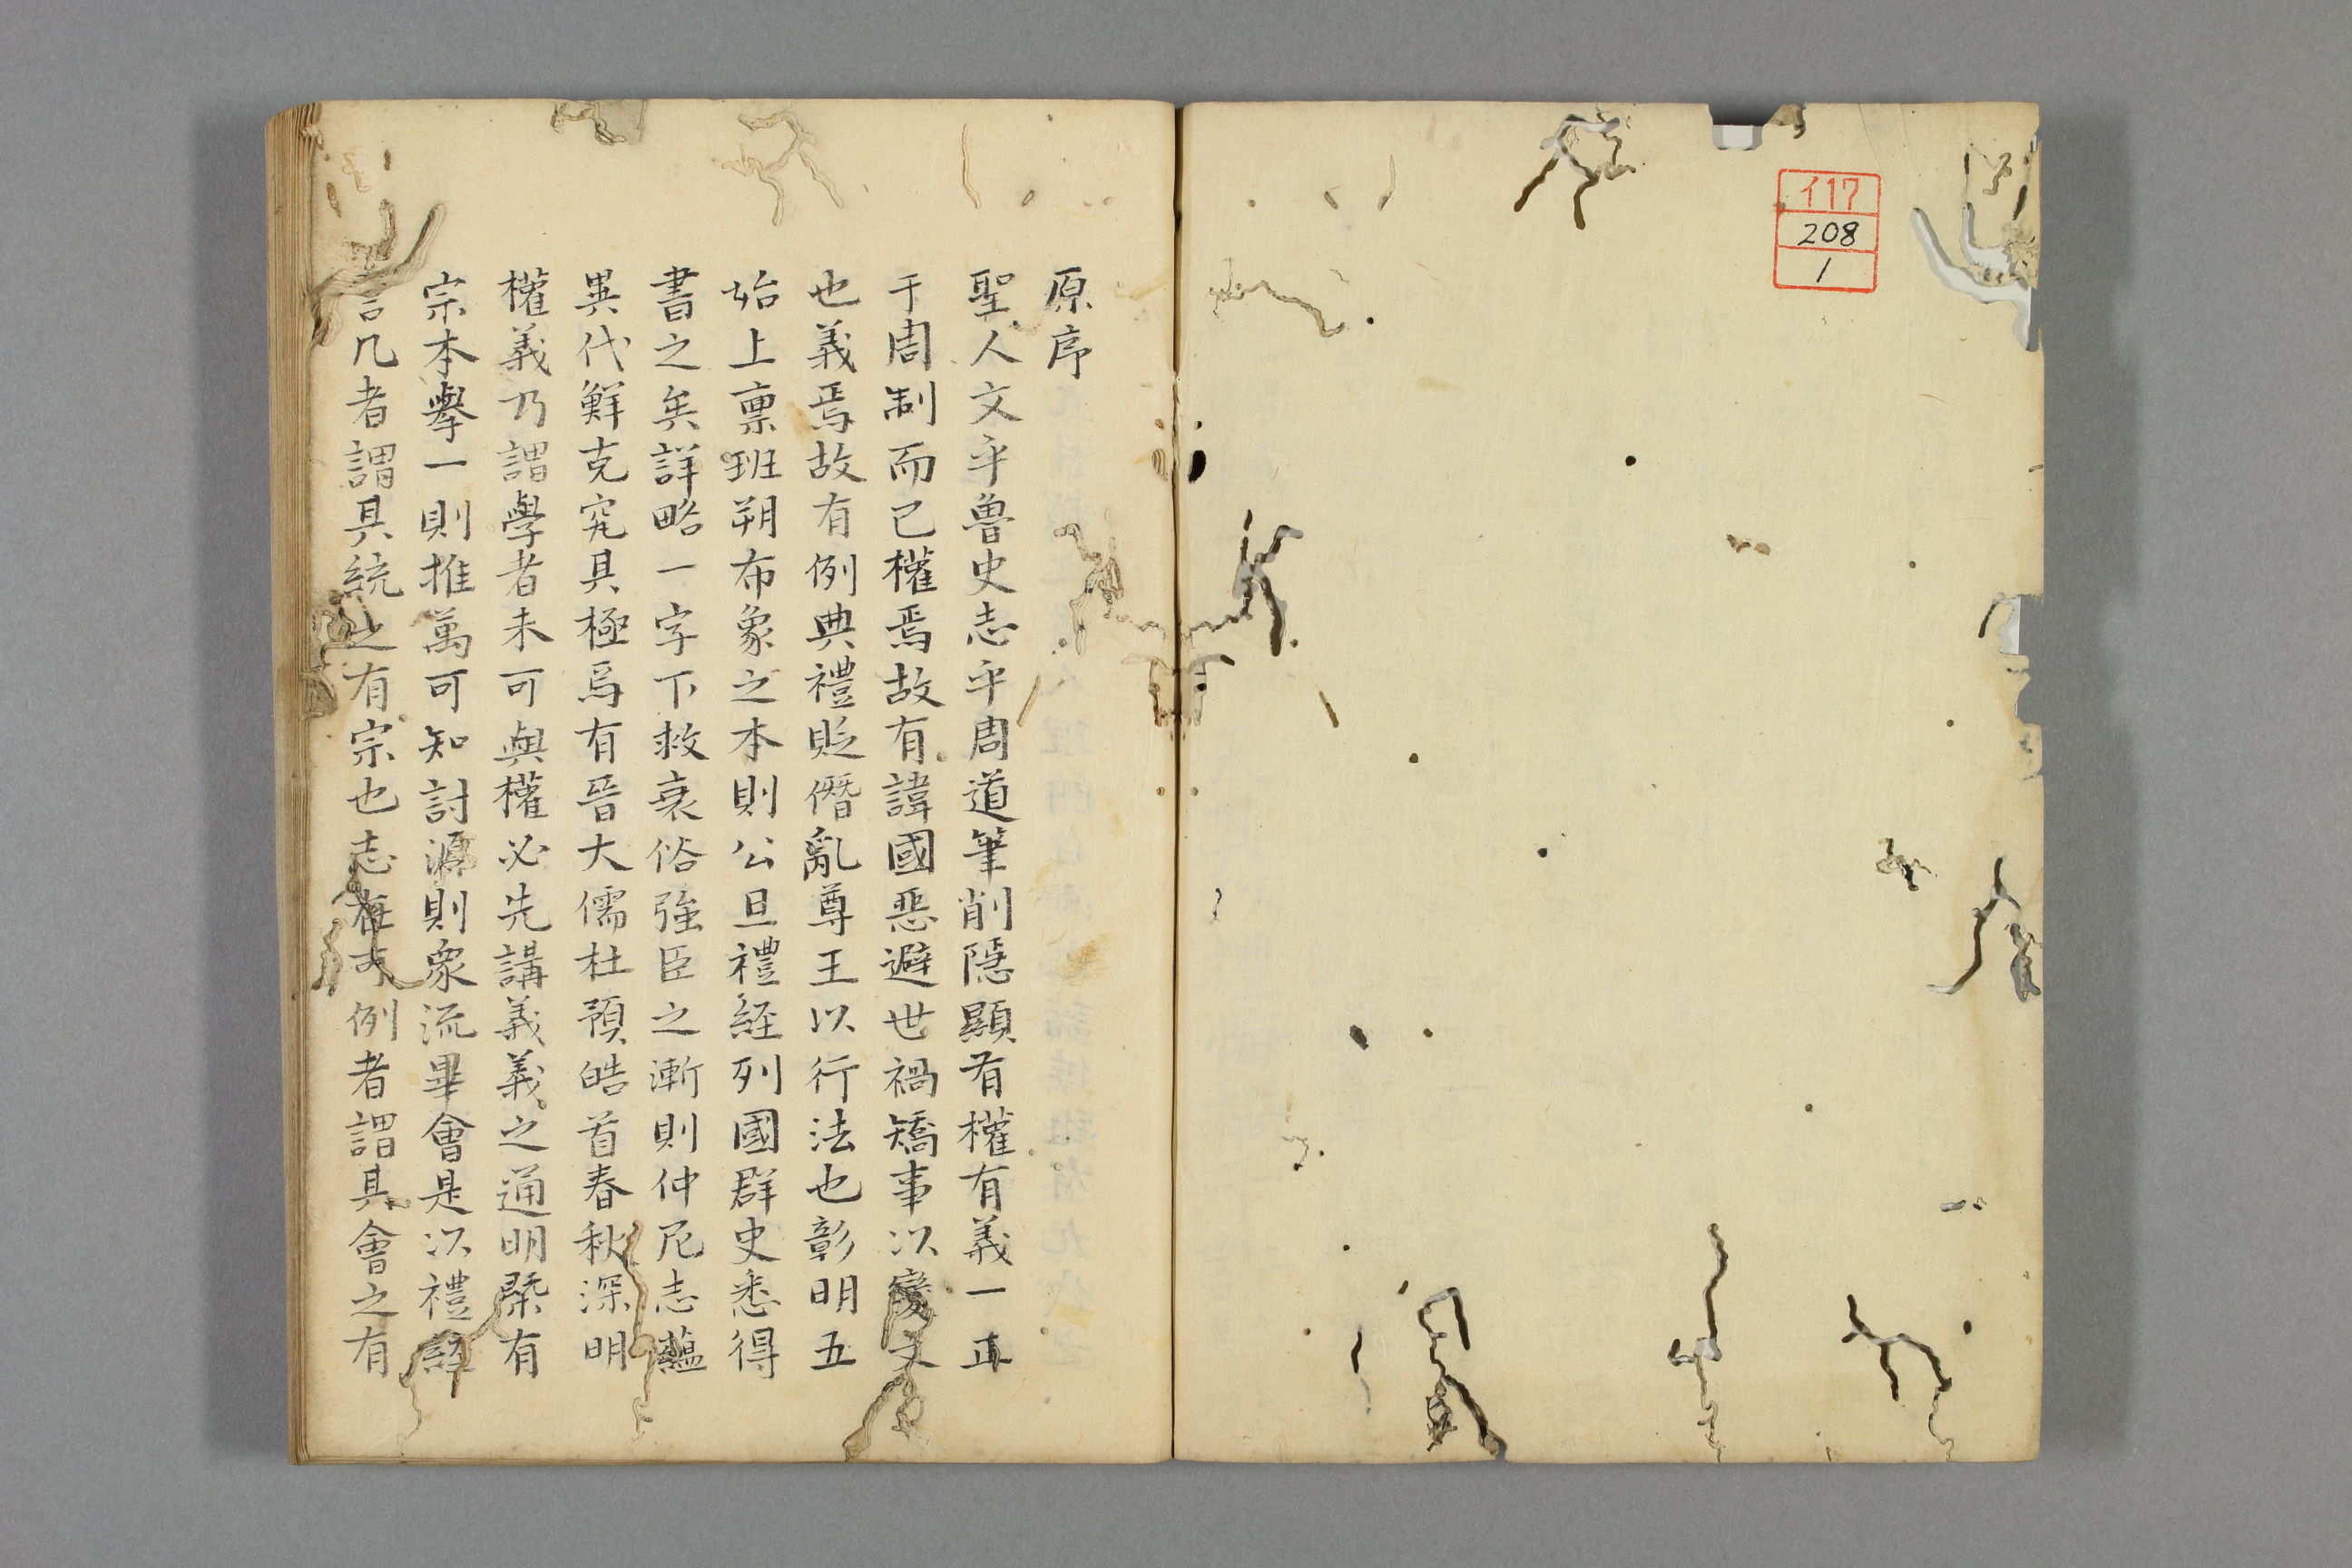 イ17
208
1
原序
聖人文乎魯史志乎周道筆削隱顯有權有義一正
于周制而已權焉故有諱國惡避世禍矯事以變文
也義焉故有例典禮貶僭亂尊王以行法也彰明五
始上稟班朔布象之本則公旦禮経列國群史悉得
書之矣詳略一字下救衰俗強臣之漸則仲尼志蘊
異代鮮克究其極焉有晉大儒杜預皓首春秋深明
權義乃謂學者未可與權必先講義義之通明槩有
宗本擧一則推萬可知討源則衆流畢會是以禮
言凡者謂其統之有宗也志在 例者謂其會之有